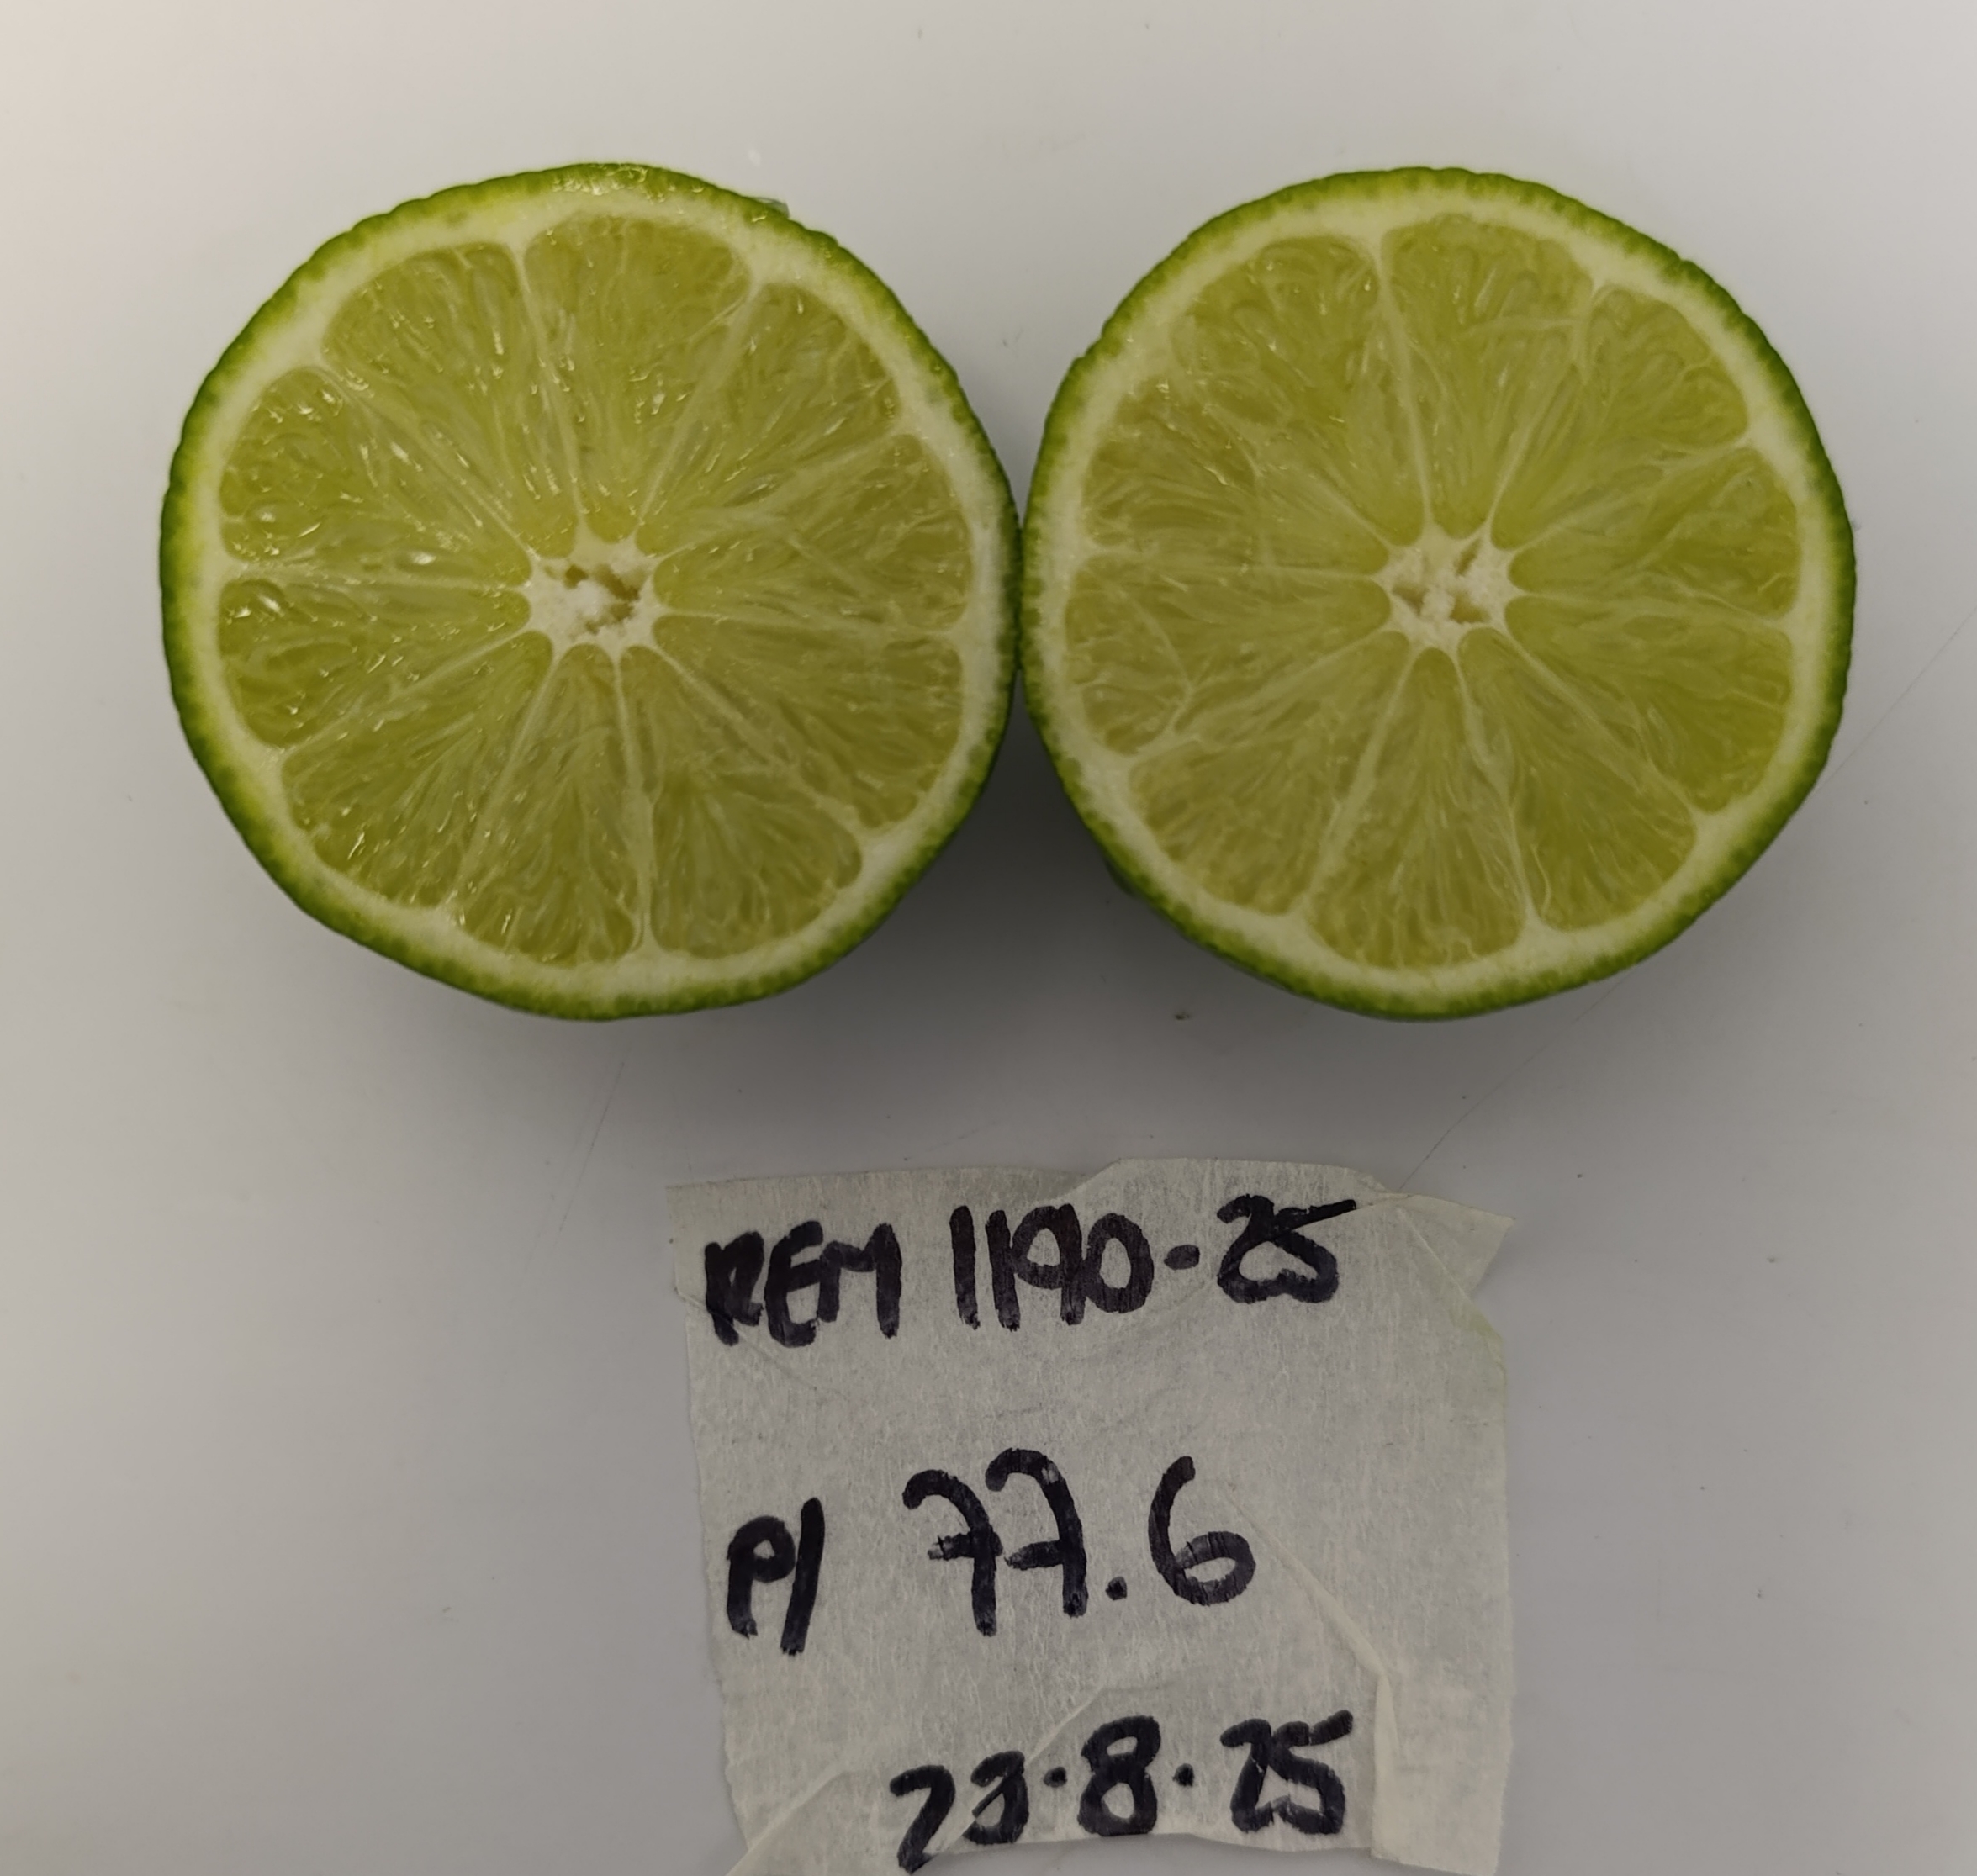 REM 1190-25
P/ 77.6
23.8.25